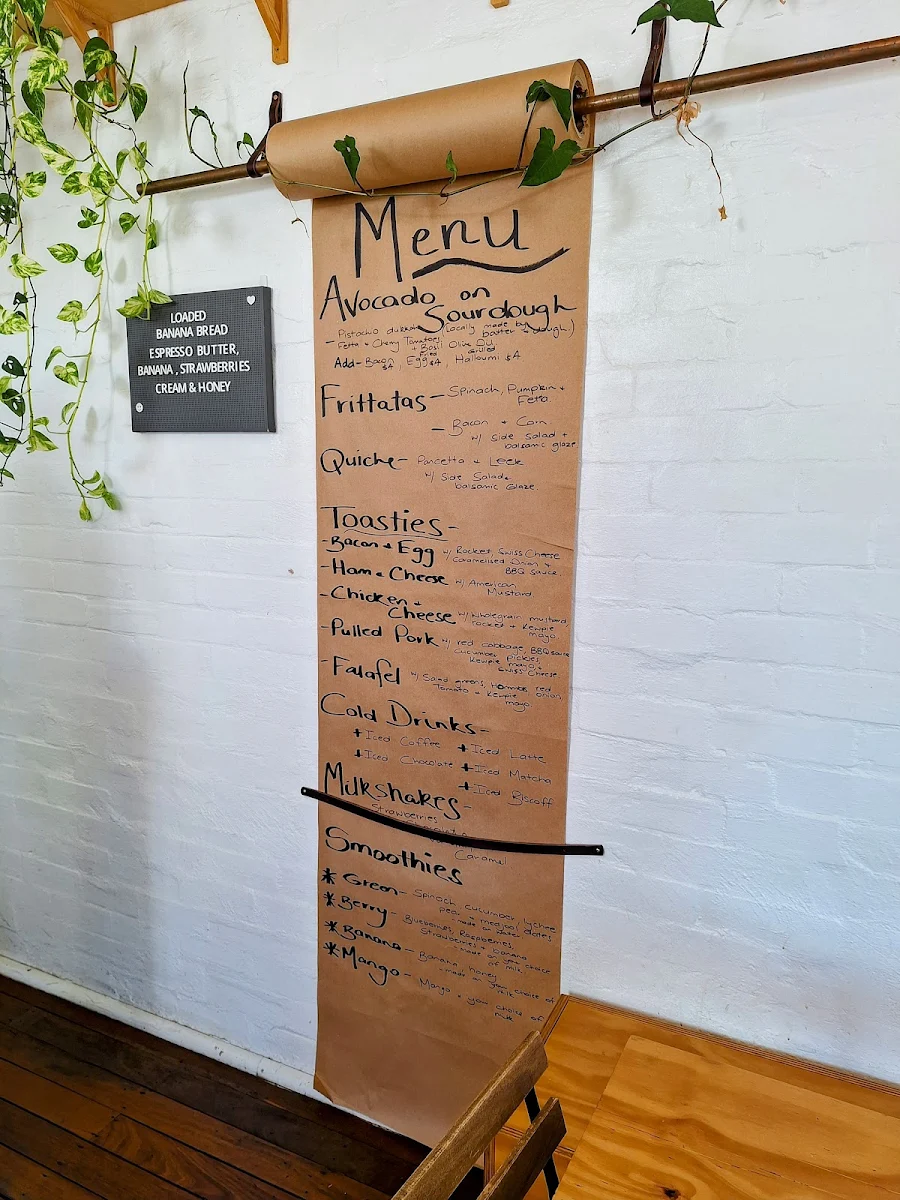 Menu
Avocado on
Sourdough
- Pistachio dukkah (Locally made by
batter + dough.)
Fetta + Cherry Tomatoes + Basil Olive Oil
Add- Bacon $4, Fried Egg $4, Grilled Halloumi $4
Frittatas - Spinach, Pumpkin +
Fetta
- Bacon + Corn
w/ side salad +
balsamic glaze
Quiche - Pancetta + Leek
w/ Side Salad +
balsamic Glaze.
Toasties -
- Bacon + Egg w/ Rocket, Swiss Cheese
Caramelised Onion +
BBQ Sauce.
- Ham + Cheese w/ American
Mustard.
- Chicken +
Cheese w/ wholegrain mustard,
rocket + Kewpie
mayo.
- Pulled Pork w/ red cabbage, BBQ sauce
cucumber pickles,
Kewpie mayo +
Swiss Cheese.
- Falafel w/ greens, red
Tomato + Kewpie onion
mayo
Cold Drinks -
+ Iced Coffee + Iced Latte
+ Iced Chocolate + Iced Matcha
+ Iced Biscoff
Milkshakes -
Strawberries
Caramel
Smoothies
* Green - Spinach, cucumber, lychee
pear + medjool dates
- made on water
* Berry - Blueberries, Raspberries,
Strawberries + banana
- made on your choice
of milk.
* Banana - Banana, honey
- made on your choice of
milk
* Mango - Mango + your choice of
milk
LOADED
BANANA BREAD
ESPRESSO BUTTER,
BANANA, STRAWBERRIES
CREAM & HONEY